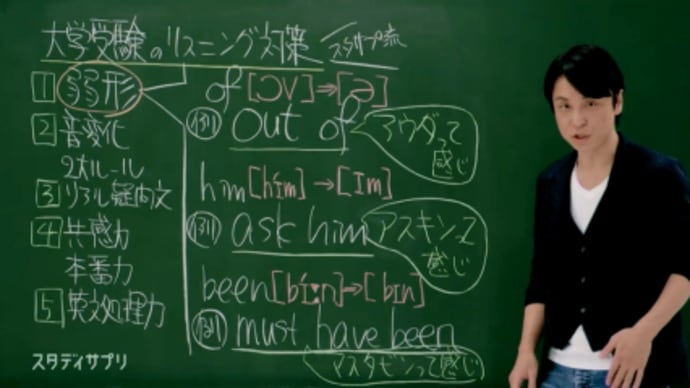 大学受験のリスニング対策 スタサプ流
1 弱形
2 音変化
2大ルール
3 リアル疑問文
4 共感力
本番力
5 英文処理力
of [ɔv]⇒[ə]
例 out of アウダって感じ
him [hím]→[Im]
例 ask him アスキンって感じ
been [bí:n]→[bIn]
例 must have been
マスタビンって感じ
スタディサプリ